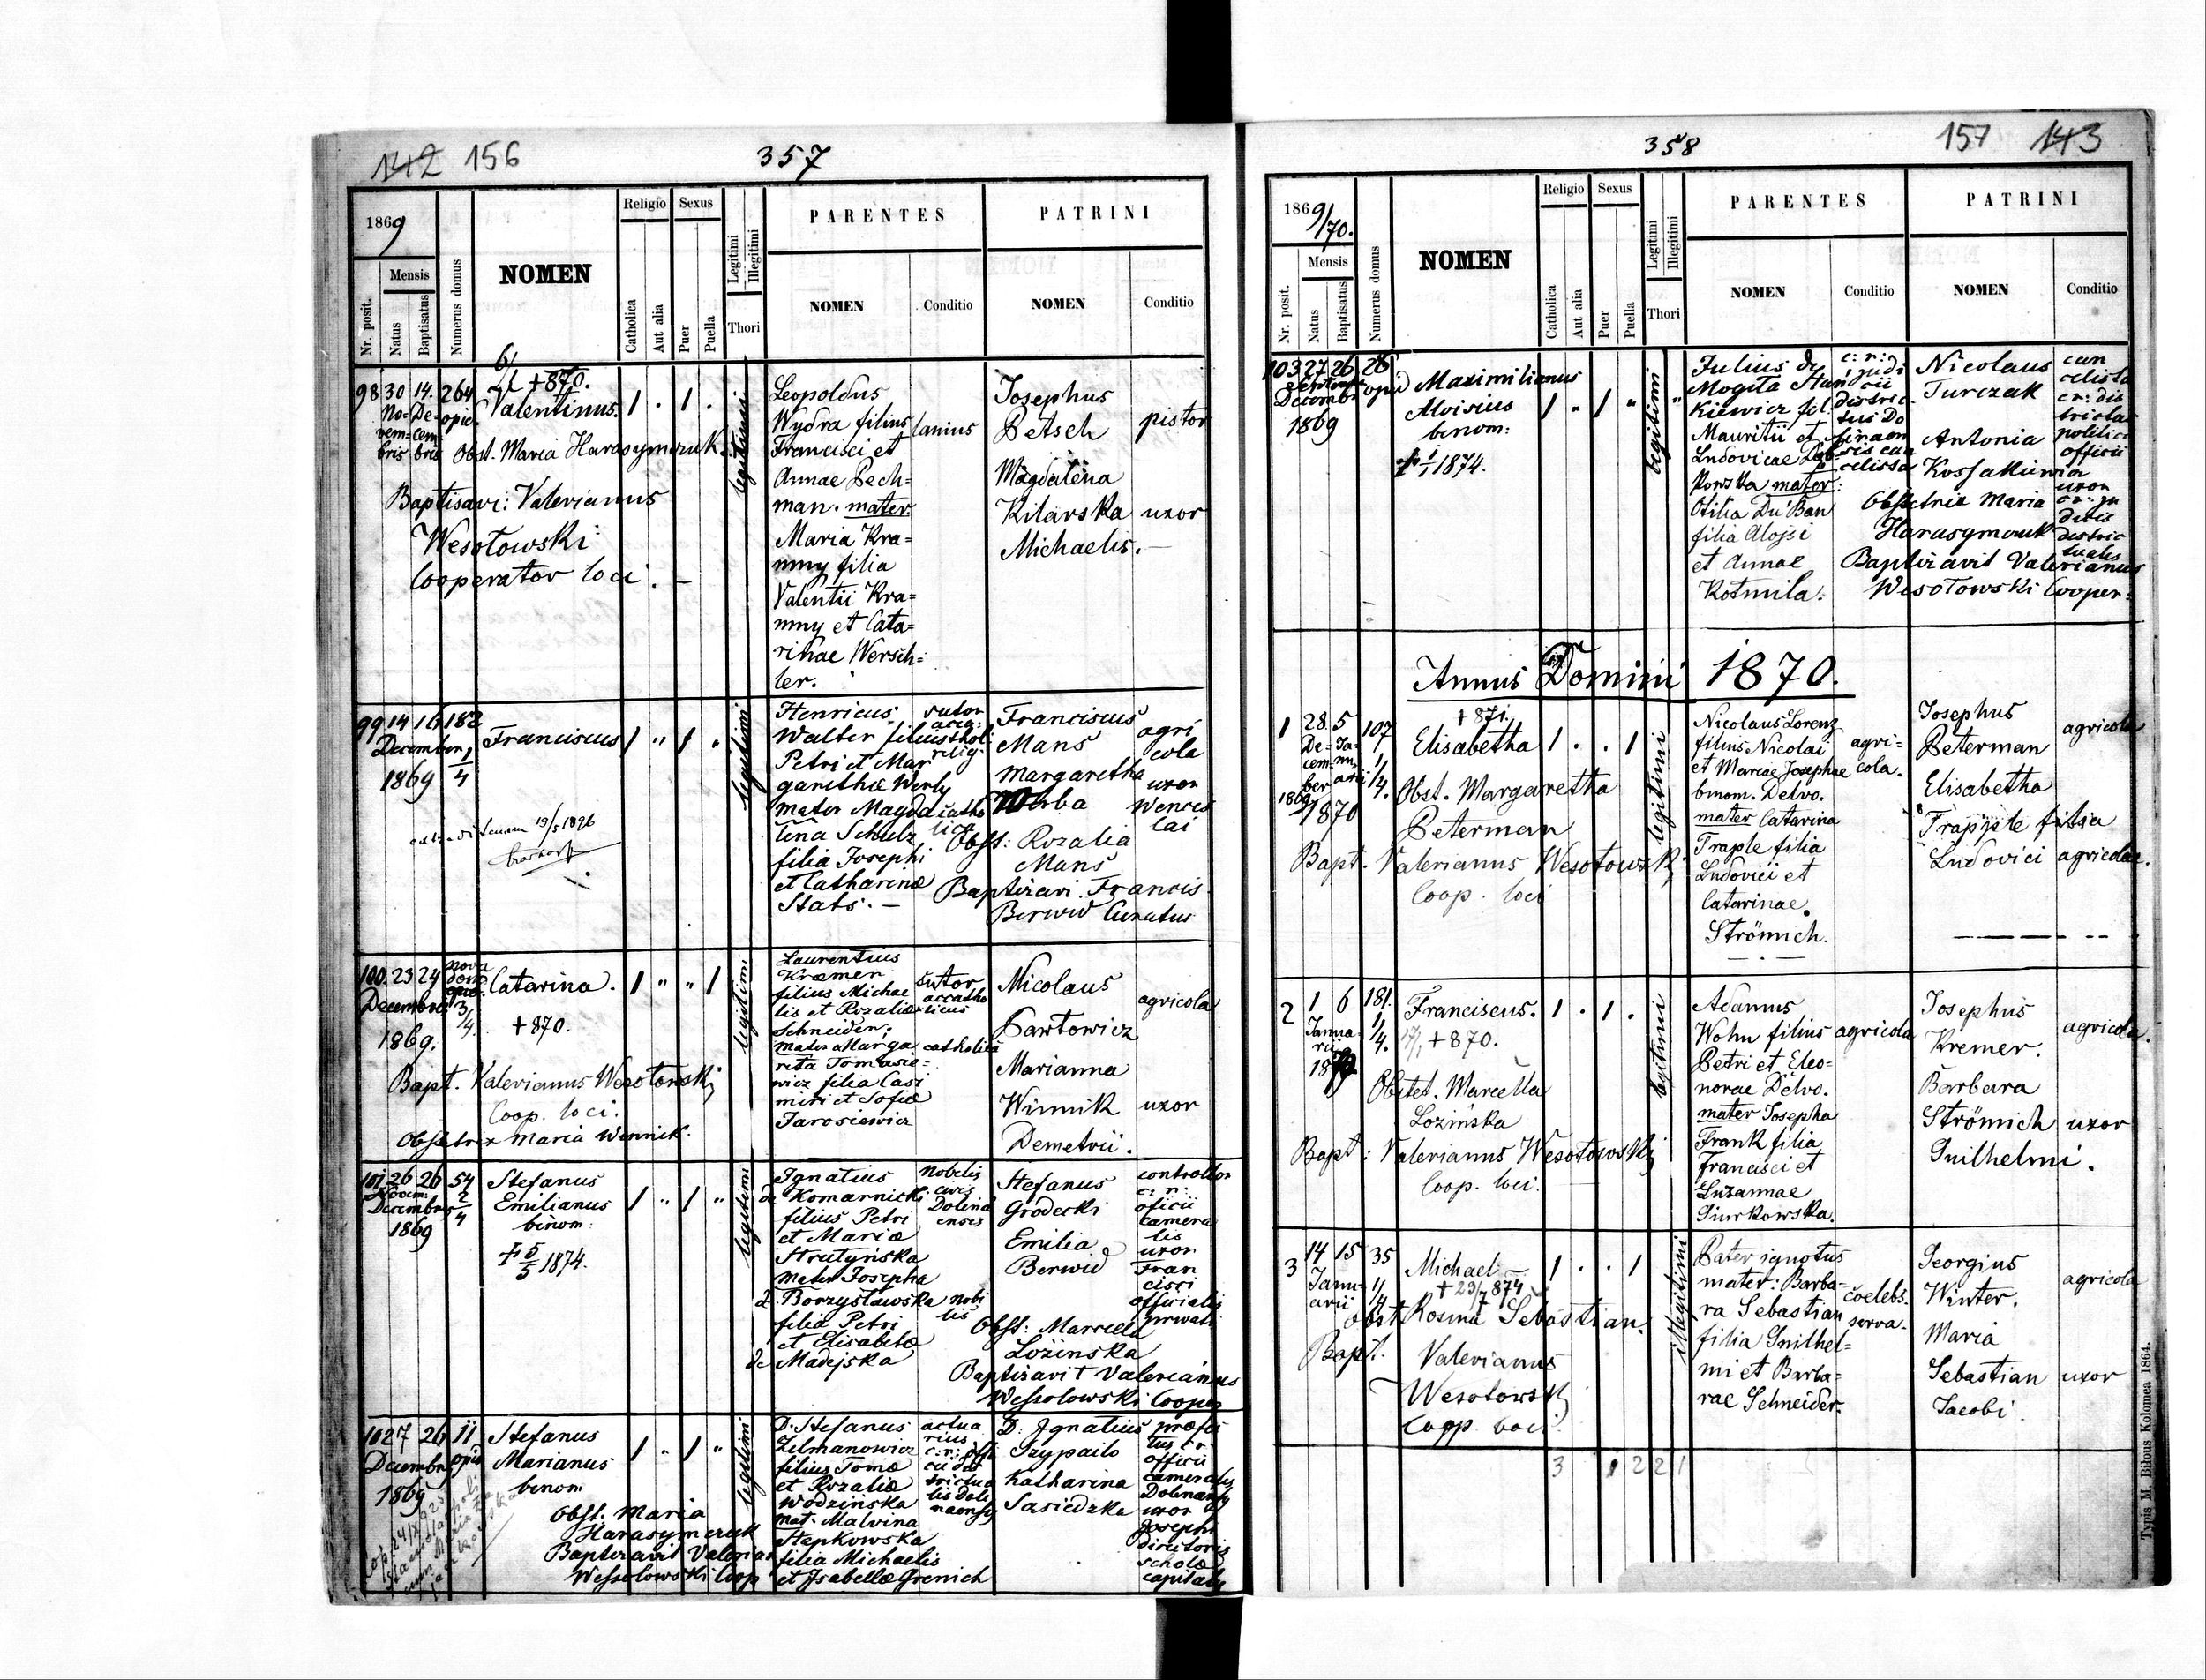 142 156
357
1869
Nr. posit.
Mensis
Natus
Baptisatus
Numerus domus
NOMEN
Religio
Catholica
Aut alia
Sexus
Puer
Puella
Legitimi
Illegitimi
Thori
PARENTES
NOMEN
Conditio
PATRINI
NOMEN
Conditio
98 30 14. 264
No- De-
vem- cem-
bris bris
+870.
Valentinus.
1 . 1 .
Obst. Maria Harasymczuk.
Baptisavi: Valerianus
Wesołowski
Cooperator loci. –
legitimi
Leopoldus
Wydra filius
Francisci et
Annae Pech=
man. mater
Maria Kra=
mny filia
Valentii Kra=
mny et Cata=
rinae Wersch=
ler.
lanius
Josephus
Petsch
Magdalena
Kilarska
Michaelis. –
pistor
uxor
99 14 16 182
Decembr 1/4
1869
Franciscus
1 " 1 .
19/5 1896
legitimi
Henricus
Walter filius
Petri et Mar
garithæ Werly
mater Magda
lena Schulz
filia Josephi
et Catharinæ
Stats. –
sutor
relig.
catho
lica
Franciscus
Mans
Margaretha
Werba
Obst: Rozalia
Mans
Baptizavi. Francis.
Berwid Curatus
agri
cola
uxor
Wences
lai
100. 23 24
nova
3/4.
Decembr
1869.
Catarina.
+870.
1 " " 1
Bapt. Valerianus Wesołowski
Coop. loci.
Obstetrix Maria Winnik.
legitimi
Laurentius
Kræmer
filius Michae
lis et Rozaliæ
Schneider;
mater Marga
rita Tomasie=
wicz filia Casi
miri et Sofiæ
Jarosiewicz
sutor
accatho
licus
catholica
Nicolaus
Bartowicz
Marianna
Winnik
Demetrii.
agricola
uxor
101 26 26 54
2/4
Decembris
1869
Stefanus
Emilianus
binom:
+ 5/5 1874.
1 " 1 "
legitimi
Ignatius
de Komarnicki
filius Petri
et Mariæ
Stratyńska
mater Josepha
d. Borzysławska
filia Petri
et Elisabetæ
de Madejska
nobilis
civis
Dolina
ensis
nobi
lis
Stefanus
Grodecki
Emilia
Berwid
Obst: Marcella
Łozińska
Baptizavit Valerianus
Wessolowski Cooper
controllor
c: r:
oficii
camera
lis
uxor
Fran
cisci
officialis
privati
102 7 26 11
Decembr
1869
Stefanus
Marianus
binom
1 " 1 "
Obst. Maria
Harasymczuk
Baptizavit Valerian
Wessolowski Coop
legitimi
D. Stefanus
Zelmanowicz
filius Tomæ
et Rozaliæ
Wodzińska
mat. Malvina
Stepkowska
filia Michaelis
et Isabellæ Grenich
actua
rius
c: r: offi
cii dis
trictua
lis Doli
naensis
D. Ignatius
Szypailo
Katharina
Sasiedzka
præfec
tus c r
officii
cameralis
Dolinaensis
uxor
Josephi
directoris
scholæ
capitalis
358
157 143
1869/70.
Nr. posit.
Mensis
Natus
Baptisatus
Numerus domus
NOMEN
Religio
Catholica
Aut alia
Sexus
Puer
Puella
Legitimi
Illegitimi
Thori
PARENTES
NOMEN
Conditio
PATRINI
NOMEN
Conditio
103 27 26 28
Decembr
1869
Maximilianus
Aloisius
binom:
1 " 1 "
1874.
legitimi
Julius de
Mogila Stan
kiewicz fil.
Mauritii et
Ludovicae
mater:
Otilia Du Ban
filia Alojsi
et Annae
Kotmila.
c: r: judi
cii
distric
tus Do
linaen
sis can
celista
Nicolaus
Turczak
Antonia
Kossakiewicz
Obstetrix Maria
Harasymczuk
Baptizavit Valerianus
Wesołowski Cooper:
can
celista
c r: dis
trictus
politici
officii
uxor
c: r: ju
dicis
distric
tualis
Annus Domini 1870.
1 28 5 107
De- Ja-
cem- nu-
ber arii 1/4.
1869 1870
+871.
Elisabetha
1 . . 1
Obst. Margaretha
Peterman
Bapt. Valerianus Wesołowski
Coop. loci
legitimi
Nicolaus Lorenz
filius Nicolai
et Mariae Josephae
binom. Delvo.
mater Catarina
Traple filia
Ludovici et
Catarinae
Strömich.
agri=
cola.
Josephus
Peterman
Elisabetha
Trapple filia
Ludovici
agricola
agricolae.
2 1 6 181.
Janua
rii 1/4.
1870
Franciscus.
17/1 +870.
1 . 1 .
Obstet. Marcella
Lozińska
Bapt: Valerianus Wesołowski
Coop. loci.
legitimi
Adamus
Wohn filius
Petri et Eleo=
norae Delvo.
mater Josepha
Frank filia
Francisci et
Suzannae
Siurkowska.
agricola
Josephus
Kremer.
Barbara
Strömich
Guilhelmi.
agricola.
uxor
3 14 15 35
Janu-
arii 1/4
Michael –
+ 29/7 874
1 . . 1
Obst Rosina Sebastian.
Bapt. Valerianus
Wesołowski
Coop loci.
illegitimi
Pater ignotus
mater: Barba=
ra Sebastian
filia Guilhel=
mi et Barba=
rae Schneider.
coelebs.
serva.
Georgius
Winter.
Maria
Sebastian
Jacobi.
agricola
uxor
3 1 2 2 1
Typis M. Bilous Kolomea 1864.